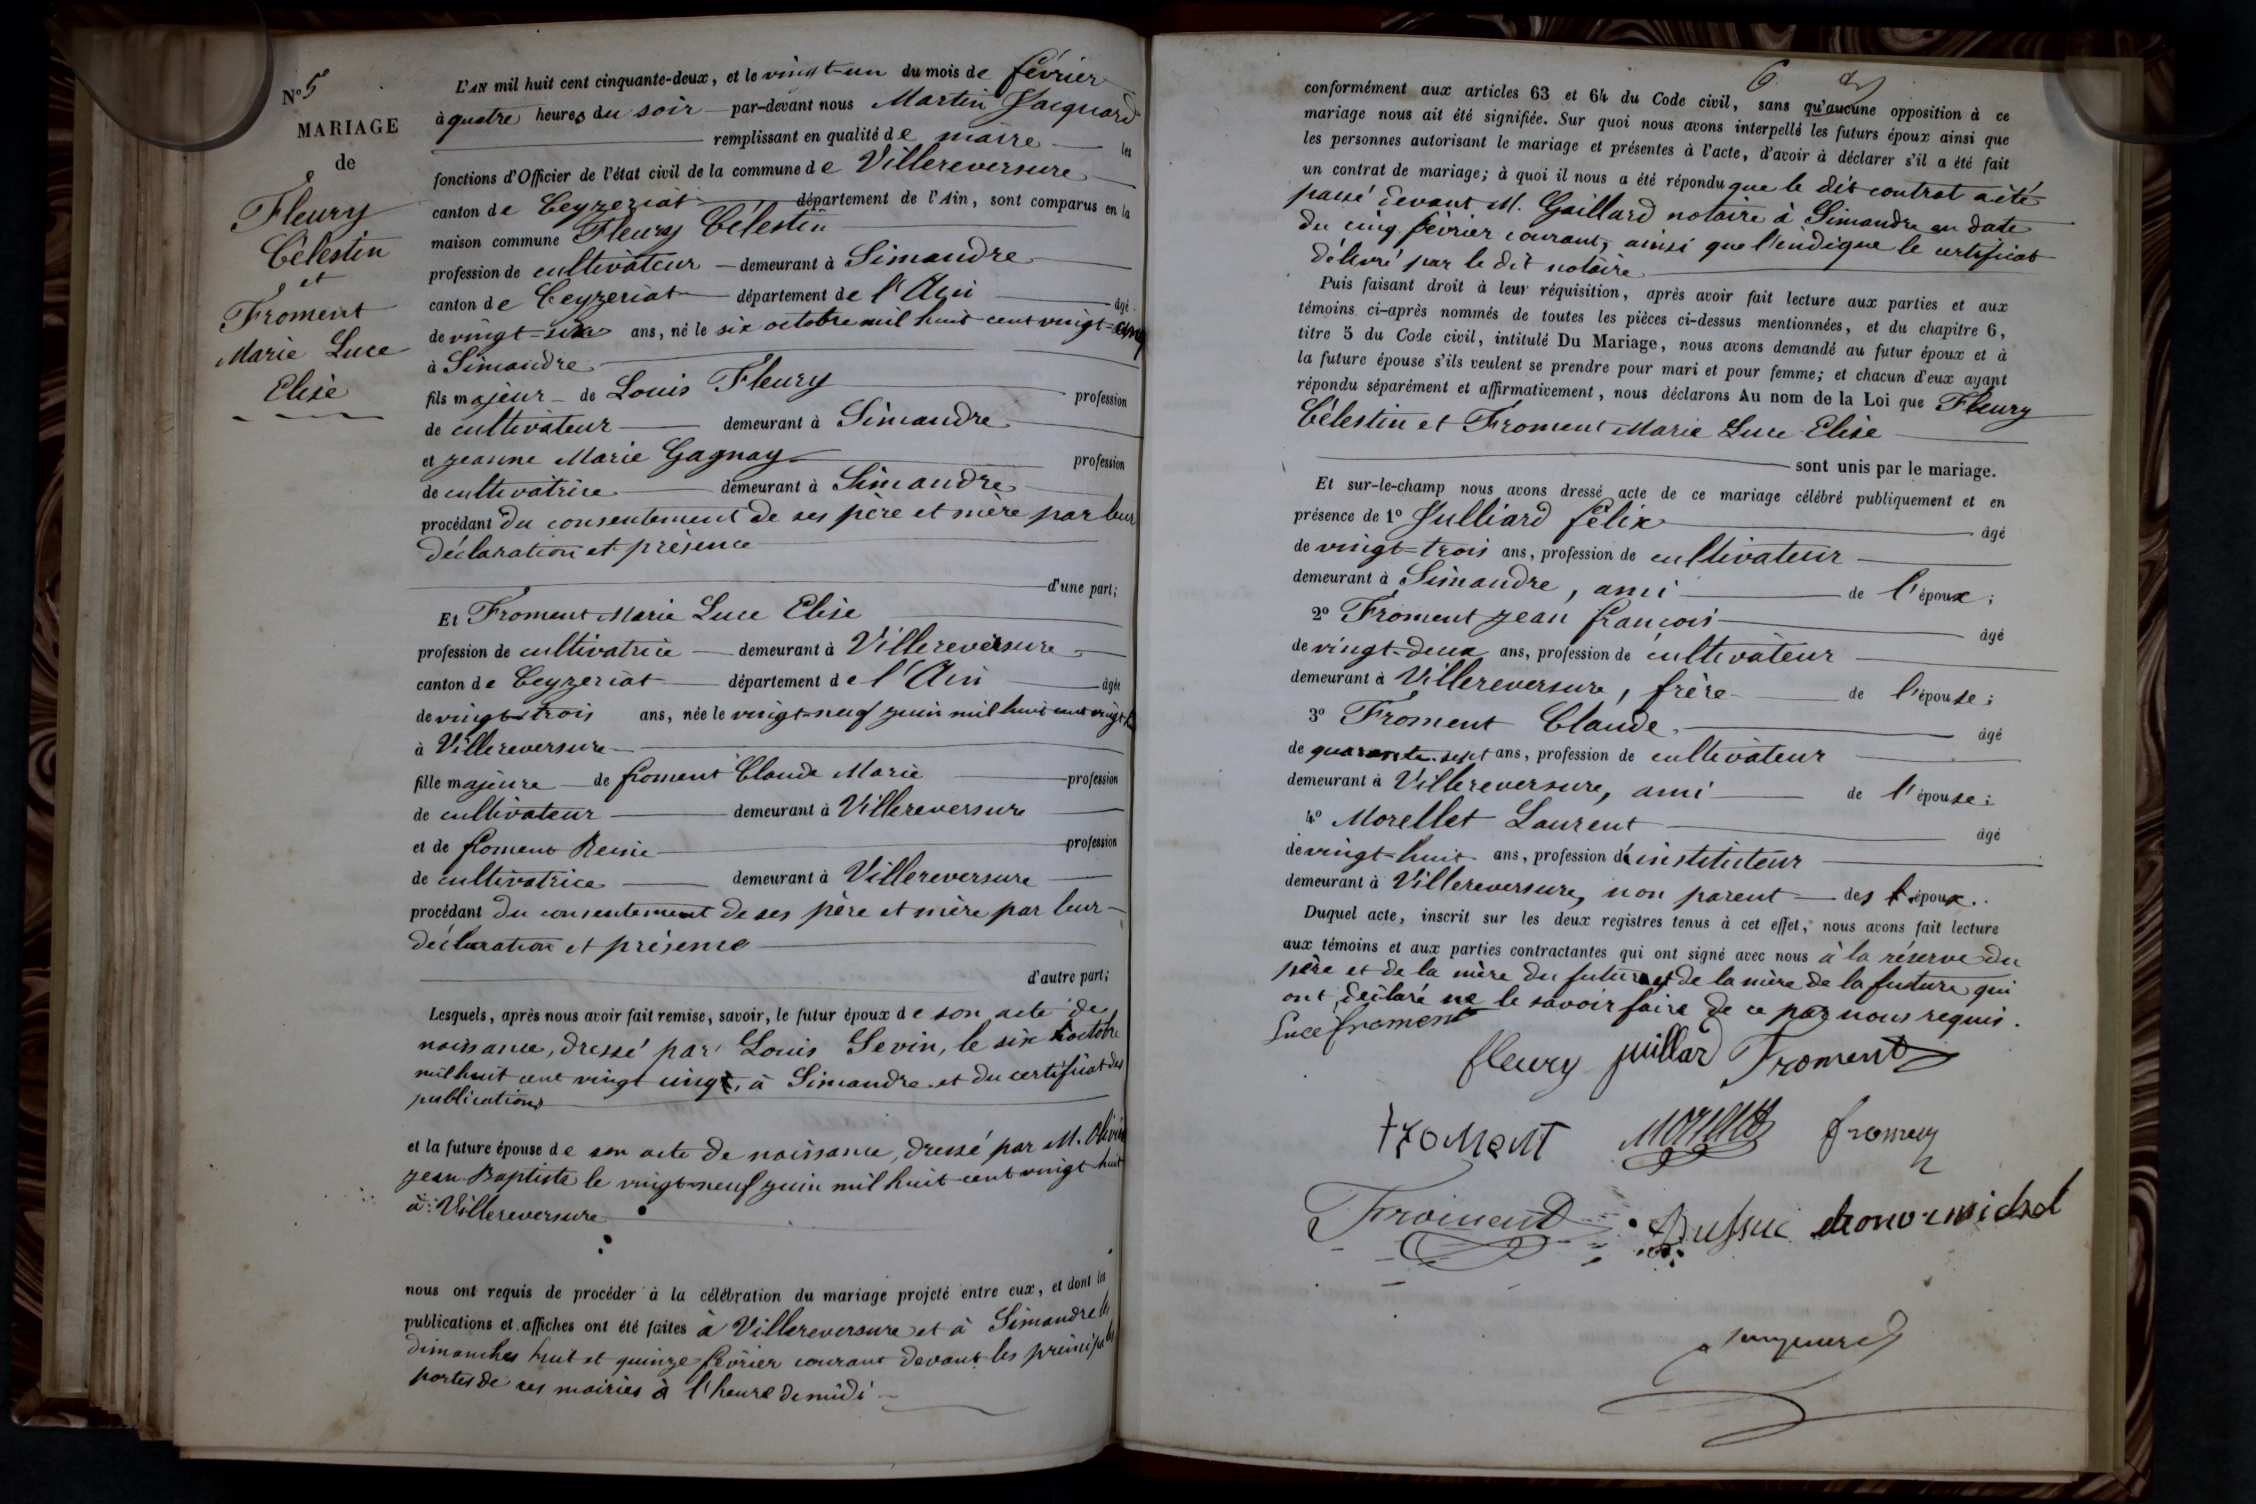 N° 5
MARIAGE
de
Fleury
Célestin
et
Froment
Marie Luce
Elise
L'AN mil huit cent cinquante-deux, et le vingt-un du mois de février
à quatre heures du soir par-devant nous Martin Jacquard
remplissant en qualité de maire les
fonctions d'Officier de l'état civil de la commune de Villereversure
canton de Ceyzeriat département de l'Ain, sont comparus en la
maison commune Fleury Célestin
profession de cultivateur demeurant à Simandre
canton de Ceyzeriat département de l'Ain âgé
de vingt=six ans, né le six octobre mil huit cent vingt=cinq
à Simandre
fils majeur de Louis Fleury profession
de cultivateur demeurant à Simandre
et jeanne Marie Gagnay profession
de cultivatrice demeurant à Simandre
procédant du consentement de ses père et mère par leur
déclaration et présence
d'une part;
Et Froment Marie Luce Elise
profession de cultivatrice demeurant à Villereversure
canton de Ceyzeriat département de l'Ain âgée
de vingt-trois ans, née le vingt=neuf juin mil huit cent vingt
à Villereversure
fille majeure de froment Claude Marie profession
de cultivateur demeurant à Villereversure
et de froment Reine profession
de cultivatrice demeurant à Villereversure
procédant du consentement de ses père et mère par leur
déclaration et présence
d'autre part;
Lesquels, après nous avoir fait remise, savoir, le futur époux de son acte de
naissance, dressé par Louis Sevin, le six octobre
mil huit cent vingt cinq, à Simandre et du certificat des
publications
et la future épouse de son acte de naissance, dressé par M. Olivier
jean Baptiste le vingt=neuf juin mil huit cent vingt huit
à Villereversure
nous ont requis de procéder à la célébration du mariage projeté entre eux, et dont les
publications et affiches ont été faites à Villereversure et à Simandre les
dimanches huit et quinze février courant devant les principales
portes de ses mairies à l'heure de midi
6
conformément aux articles 63 et 64 du Code civil, sans qu'aucune opposition à ce
mariage nous ait été signifiée. Sur quoi nous avons interpellé les futurs époux ainsi que
les personnes autorisant le mariage et présentes à l'acte, d'avoir à déclarer s'il a été fait
un contrat de mariage; à quoi il nous a été répondu que le dit contrat a été
passé devant M. Gaillard notaire à Simandre en date
du cinq février courant, ainsi que l'indique le certificat
délivré par le dit notaire
Puis faisant droit à leur réquisition, après avoir fait lecture aux parties et aux
témoins ci-après nommés de toutes les pièces ci-dessus mentionnées, et du chapitre 6,
titre 5 du Code civil, intitulé Du Mariage, nous avons demandé au futur époux et à
la future épouse s'ils veulent se prendre pour mari et pour femme; et chacun d'eux ayant
répondu séparément et affirmativement, nous déclarons Au nom de la Loi que Fleury
Célestin et Froment Marie Luce Elise
sont unis par le mariage.
Et sur-le-champ nous avons dressé acte de ce mariage célébré publiquement et en
présence de 1° Julliard félix âgé
de vingt=trois ans, profession de cultivateur
demeurant à Simandre, ami de l'époux;
2° Froment jean françois âgé
de vingt-deux ans, profession de cultivateur
demeurant à Villereversure, frère de l'épouse;
3° Froment Claude âgé
de quarante-sept ans, profession de cultivateur
demeurant à Villereversure, ami de l'épouse;
4° Morellet Laurent âgé
de vingt=huit ans, profession d'instituteur
demeurant à Villereversure, non parent des époux.
Duquel acte, inscrit sur les deux registres tenus à cet effet, nous avons fait lecture
aux témoins et aux parties contractantes qui ont signé avec nous à la réserve du
père et de la mère du futur et de la mère de la future qui
ont déclaré ne le savoir faire de ce par nous requis.
Luce froment
fleury juillard Froment
froment Morellet froment
Froment Dussuc
Jacquard